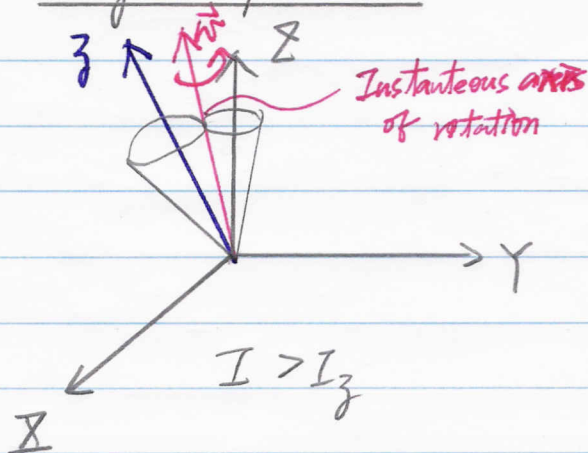 z
Z
Instanteous axis
of rotation
Y
I > I_z
X